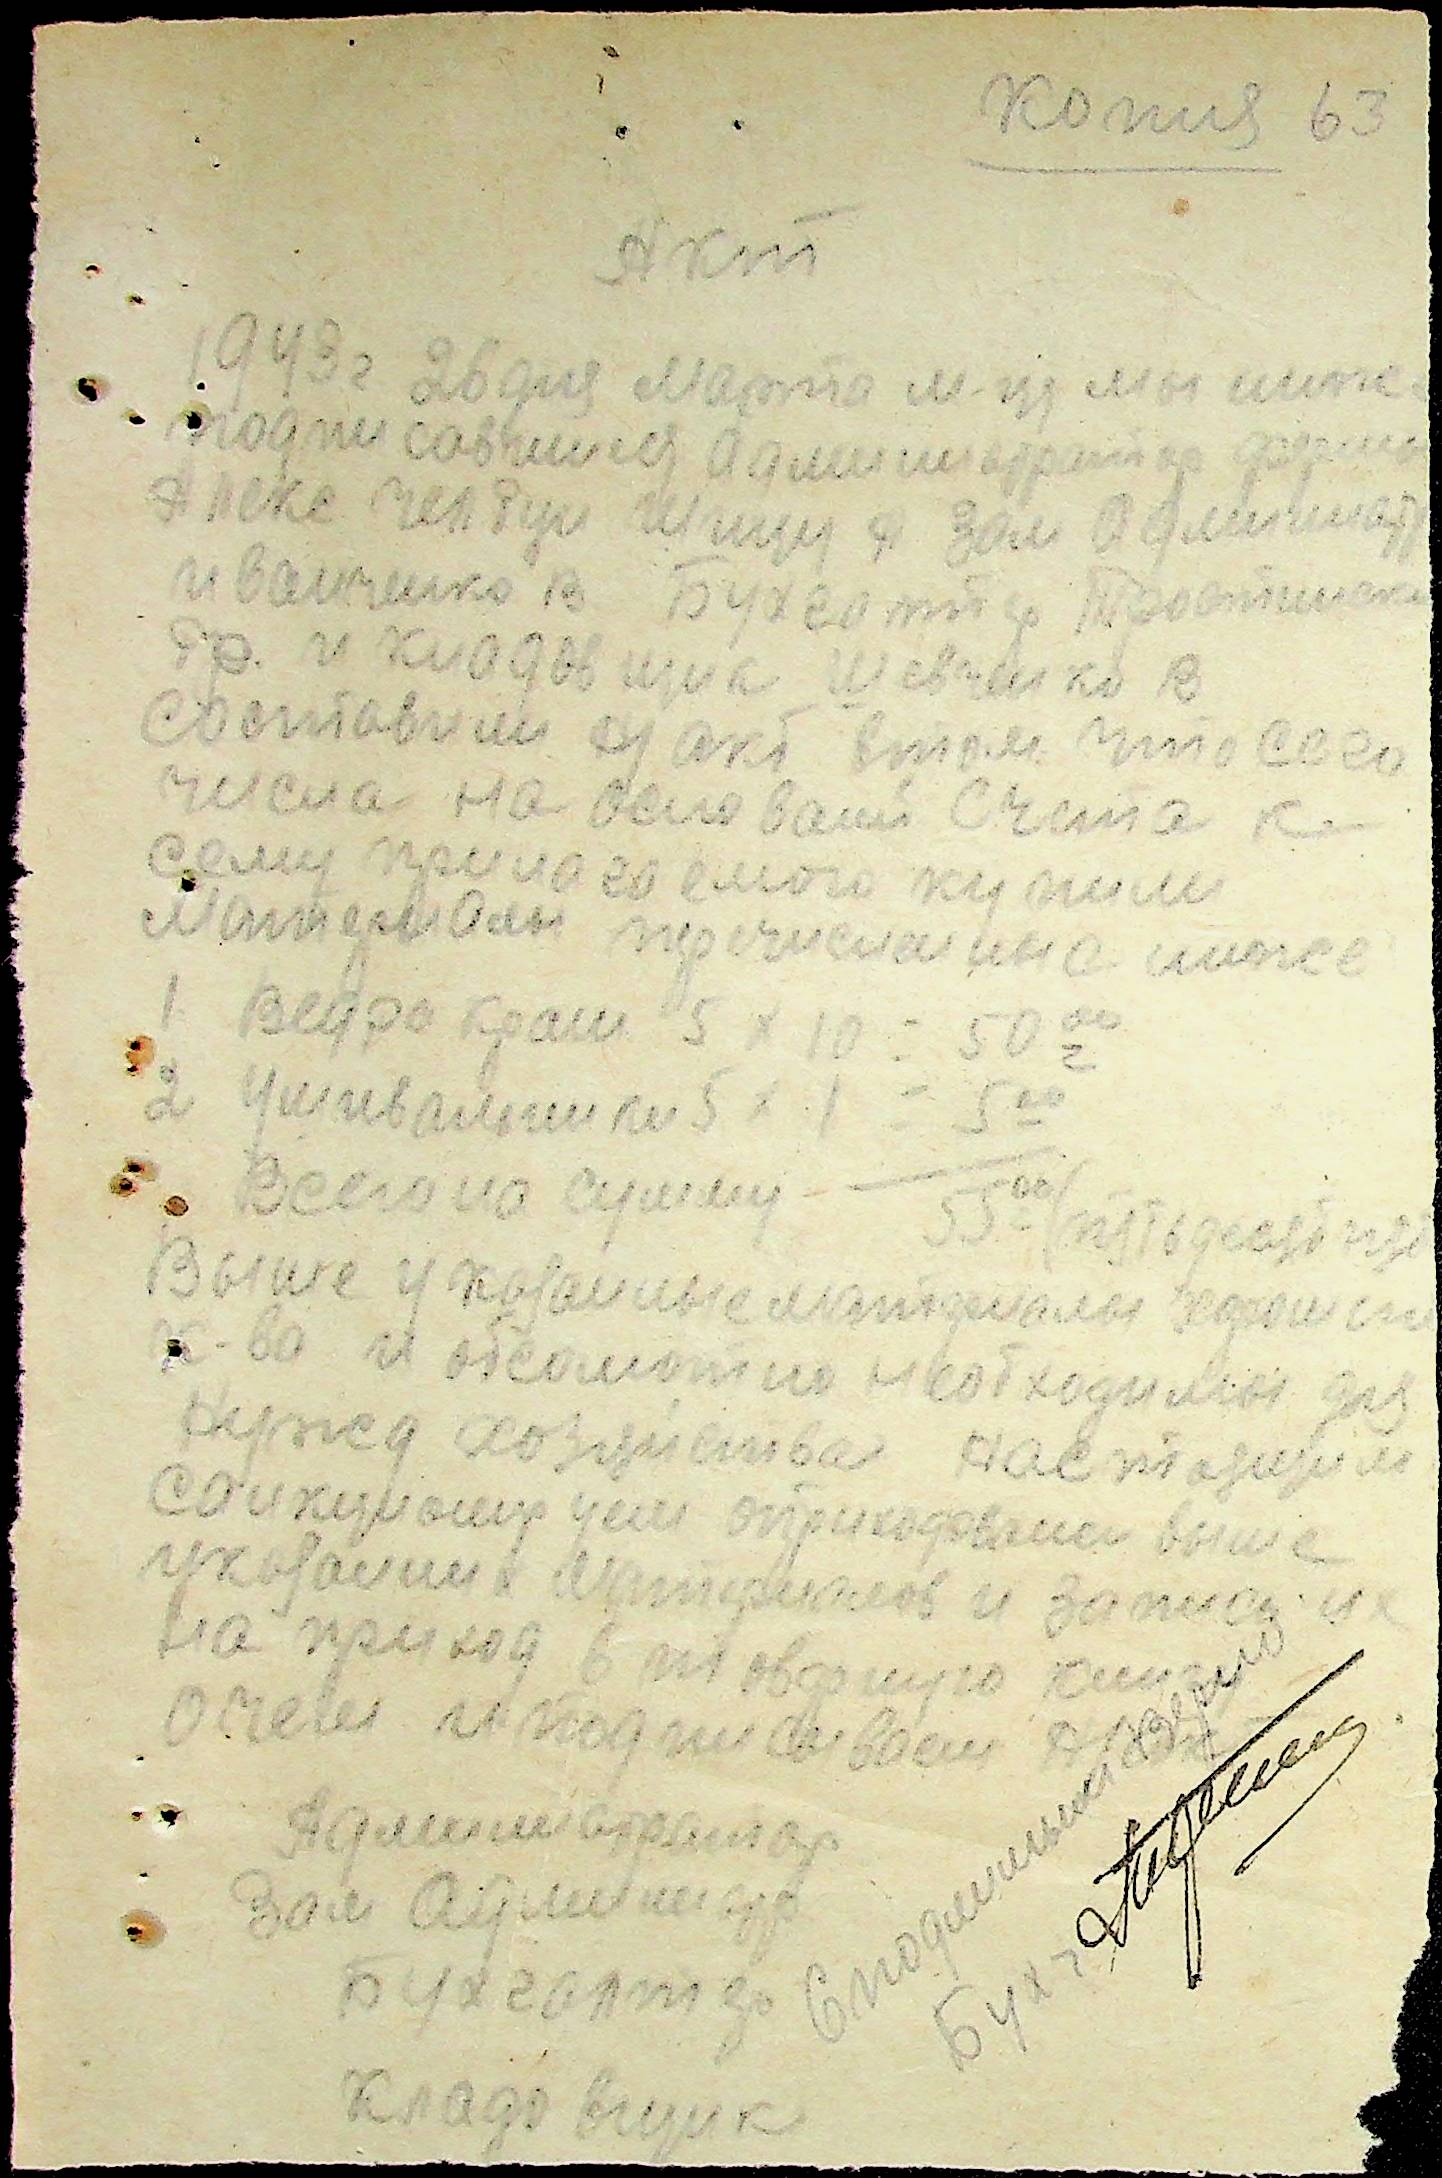 Копия 63
Акт
1943 г 26 дня Марта м-ца мы ниже
подписавшиеся Администратор фермы
Алекс Зам Админист
Иванченко В Бухгалтер
Гр. и кладовщика Шевченко В
Составили акт втом что сего
числа на основани Счета к
сему прилагаемого купили
Материалы перечисленые ниже
1 Ведра 5 х 10 = 50 00
2 Умывальники 5 х 1 = 5 00
Всего на сумму 55 00 (пятьдесят пять
Выше указанные материалы хороши
к-ва и абсолютно необходимы для
Нужд хозяйства Настоящим
оприходовании выше
указанных Материалов и запись их
на приход в товарную книгу
О чем и подписываем Акт
Администратор
Зам Админстр
Бухгалтер
Кладовщик
С подлинным верно
Бухг